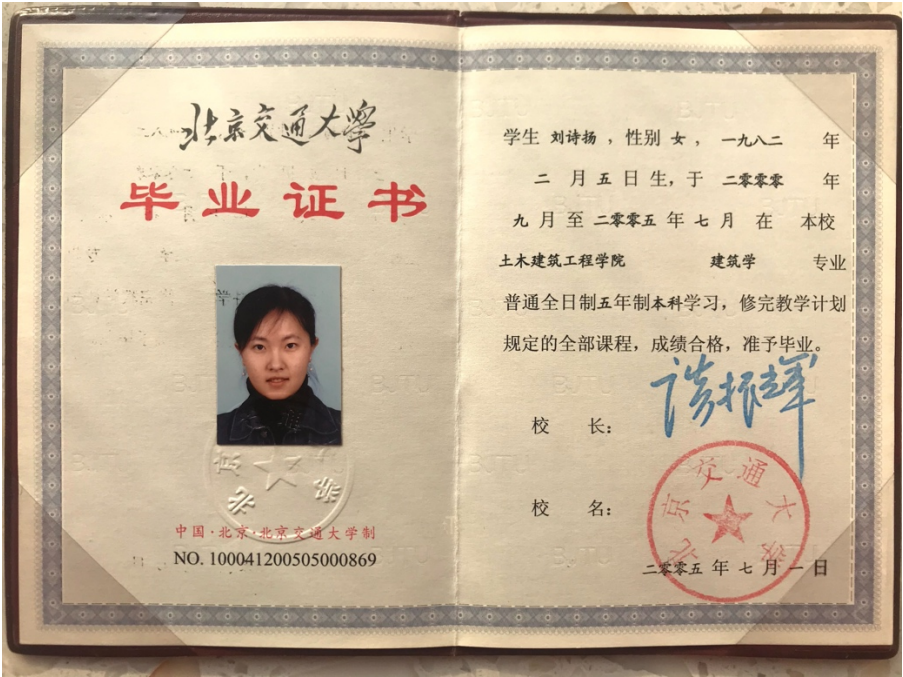 北京交通大学
毕业证书
中国·北京·北京交通大学制
NO. 100041200505000869
学生 刘诗扬，性别 女，一九八二 年
二 月 五 日 生，于 二零零零 年
九 月 至 二零零五 年 七 月 在 本校
土木建筑工程学院 建筑学 专业
普通全日制五年制本科学习，修完教学计划
规定的全部课程，成绩合格，准予毕业。
校 长：
校 名：
北京交通大学
二零零五 年 七 月 一 日